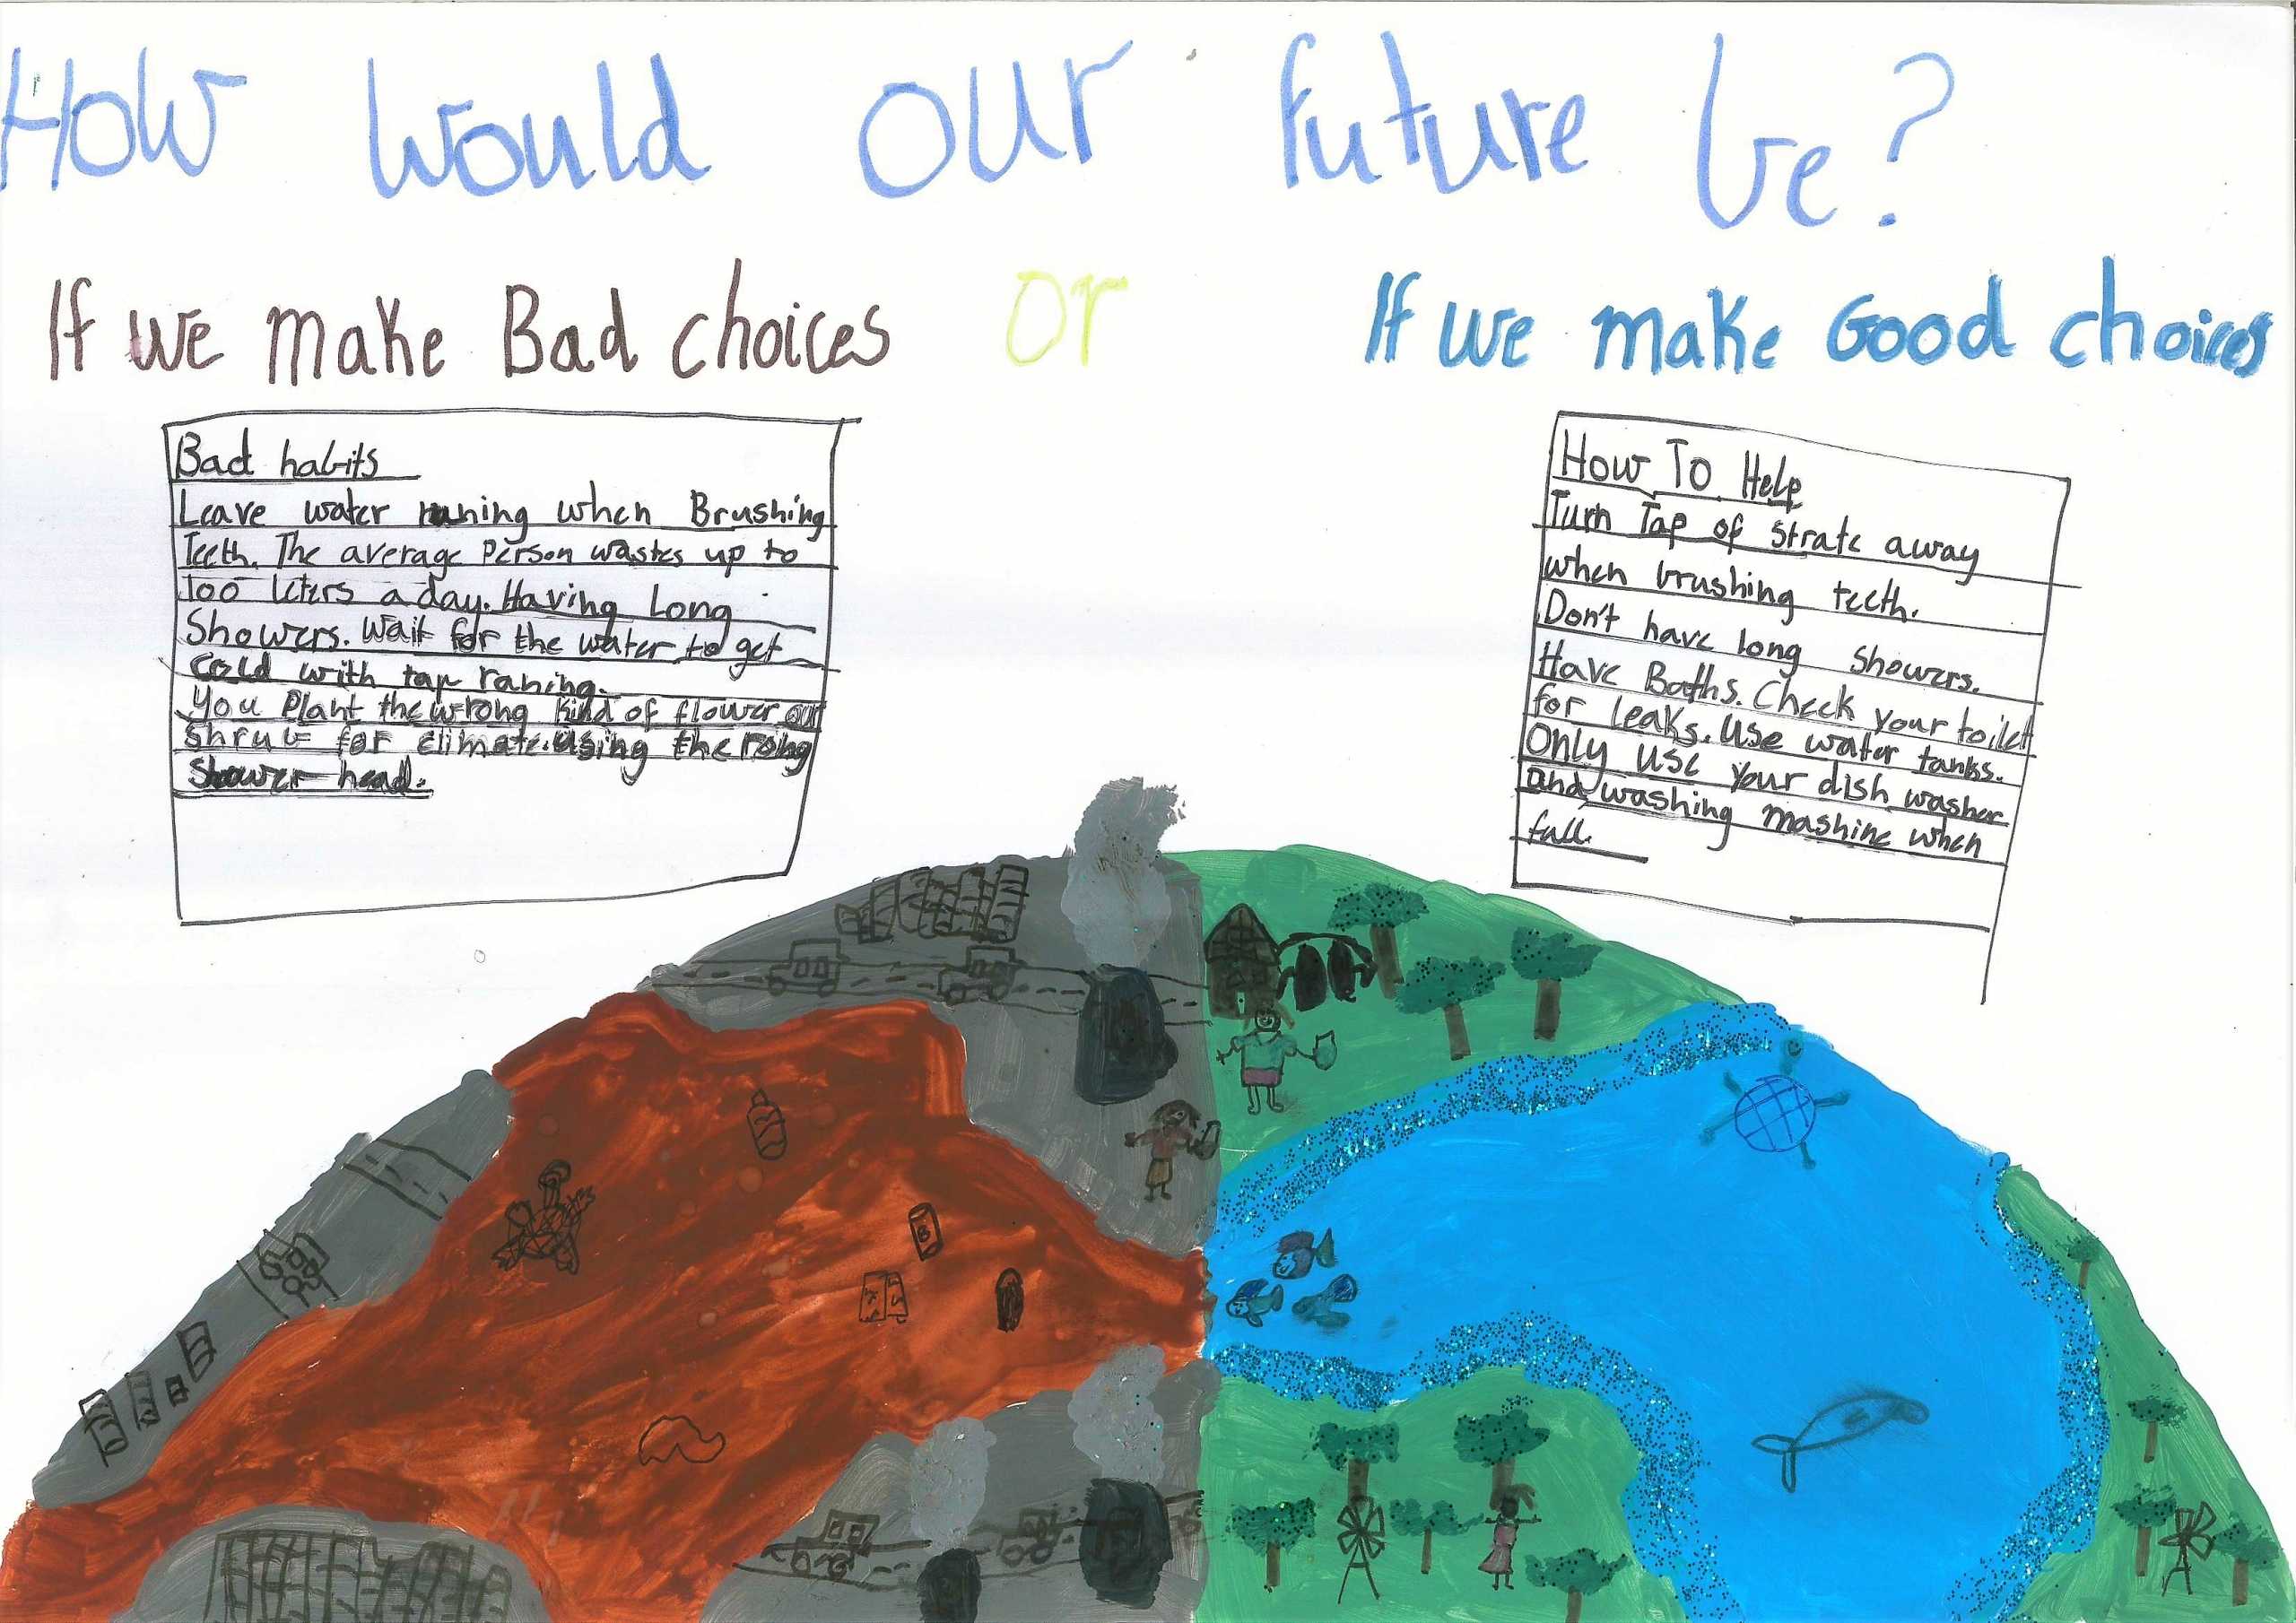 How would our future be?
If we make Bad choices or If we make Good choices
Bad habits
Leave water runing when Brushing
Teeth. The average Person wastes up to
100 leters a day. Having Long
Showers. Wait for the water to get
cold with tap raning.
You Plant the wrong kind of flower our
Shrub for climate. Using the rong
Shower head.
How To Help
Turn Tap of Strate away
when brushing teeth.
Don't have long showers.
Have Baths. Check your toilet
for leaks. Use water tanks.
Only use your dish washer
and washing mashine when
full.
B